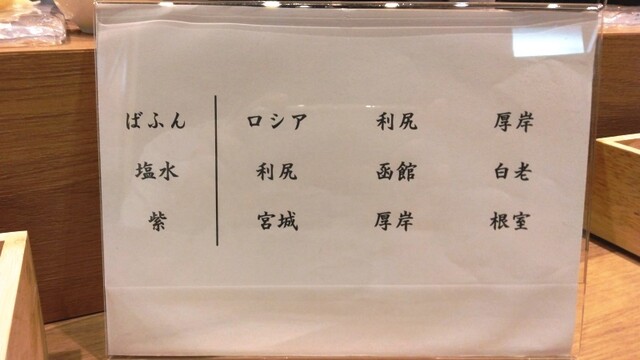 ばふん ロシア 利尻 厚岸
塩水 利尻 函館 白老
紫 宮城 厚岸 根室